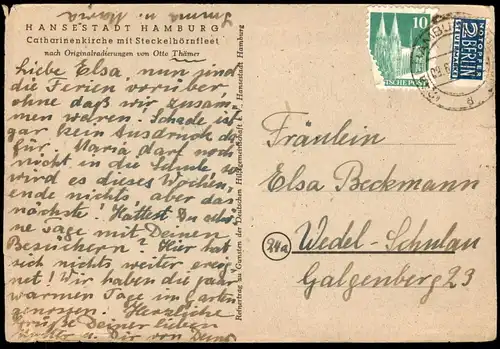 Irma u. Maria
HANSESTADT HAMBURG
Catharinenkirche mit Steckelhörnfleet
nach Originalradierungen von Otto Thämer
Liebe Elsa, nun sind
die Ferien vorüber,
ohne daß wir zusam
men waren. Schade ist
gar kein Ausdruck da
für. Maria darf noch
nicht in die Schule
wird es dieses Wochen,
ende nichts, aber das
nächste! Hattest Du schö
ne Tage mit Deinen
Besuchern? Hier hat
sich nichts weiter ereig
net! Wir haben die paar
warmen Tage im Garten
genossen. Herzliche
Grüße Deiner lieben
Mutter u. Dir von Deiner
Reinertrag zu Gunsten der Deutschen Hilfsgemeinschaft e. V., Hansestadt Hamburg
10
DEUTSCHE POST
2
NOTOPFER
BERLIN
STEUERMARKE
HAMBURG
Fräulein
Elsa Beckmann
24a
Wedel-Schulau
Galgenberg 23